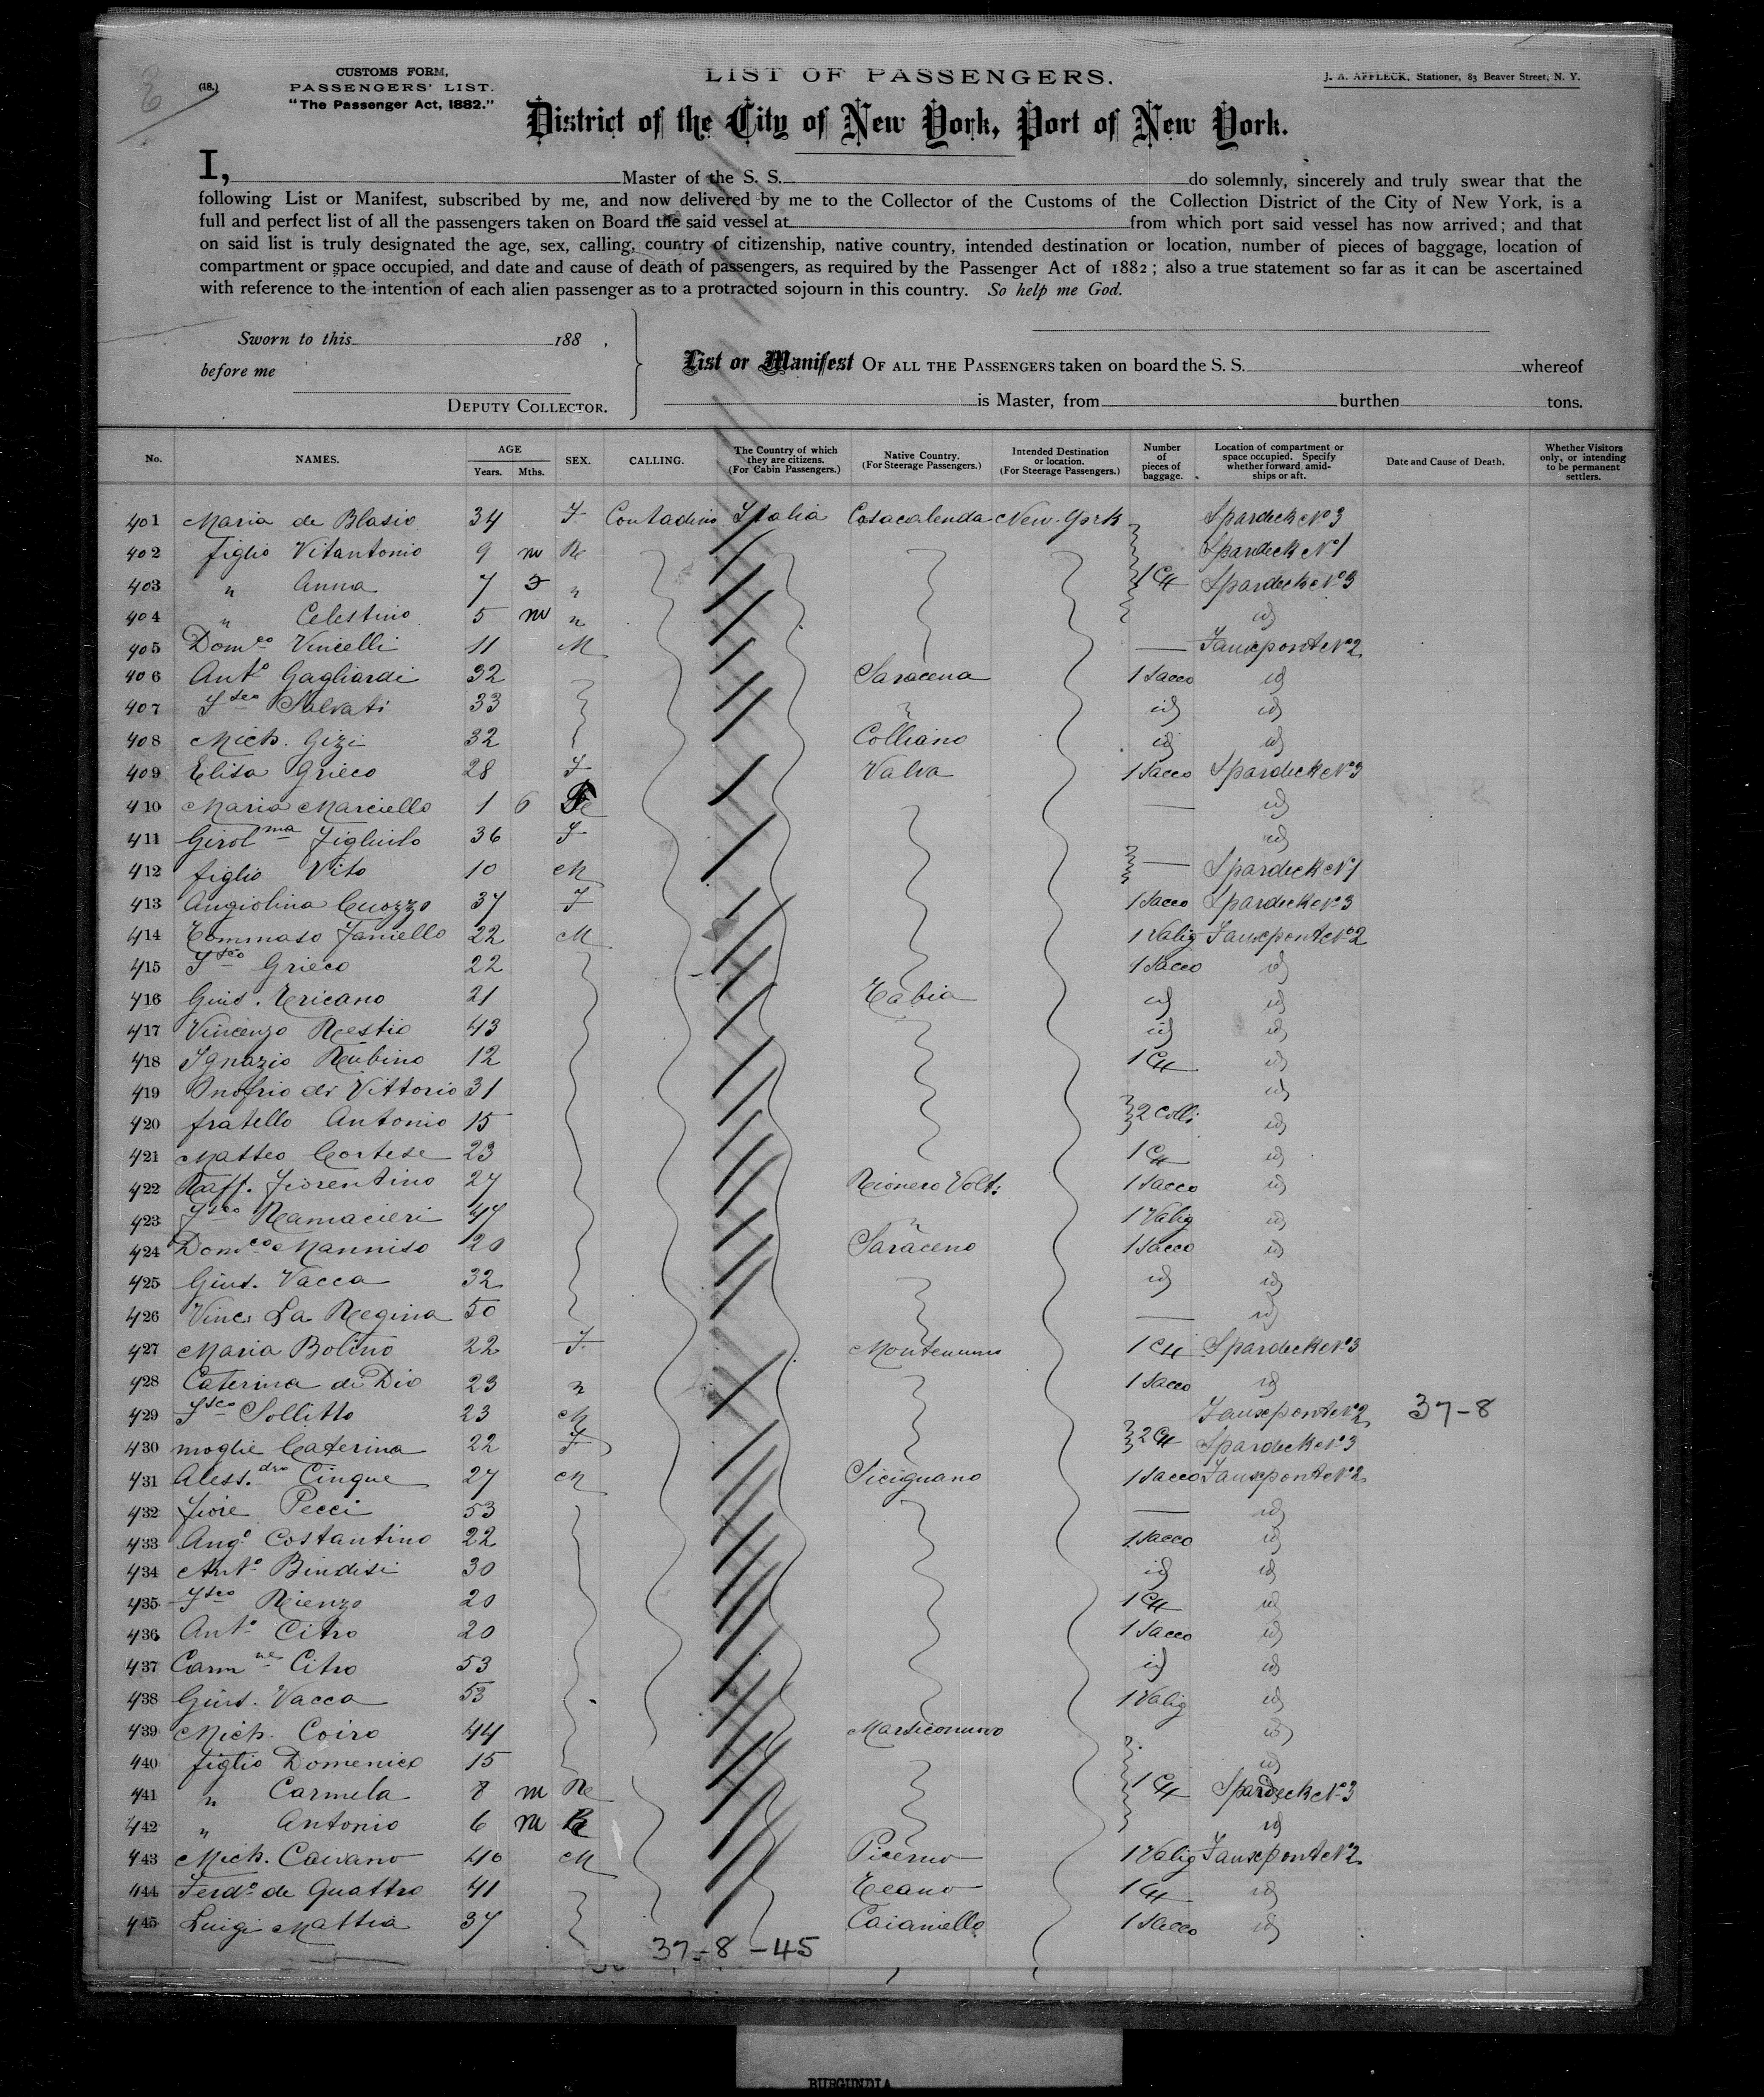 (18.)
CUSTOMS FORM,
PASSENGERS' LIST.
"The Passenger Act, 1882."
LIST OF PASSENGERS.
J. A. AFFLECK, Stationer, 83 Beaver Street, N. Y.
District of the City of New York, Port of New York.
I, Master of the S. S. do solemnly, sincerely and truly swear that the
following List or Manifest, subscribed by me, and now delivered by me to the Collector of the Customs of the Collection District of the City of New York, is a
full and perfect list of all the passengers taken on Board the said vessel at from which port said vessel has now arrived; and that
on said list is truly designated the age, sex, calling, country of citizenship, native country, intended destination or location, number of pieces of baggage, location of
compartment or space occupied, and date and cause of death of passengers, as required by the Passenger Act of 1882; also a true statement so far as it can be ascertained
with reference to the intention of each alien passenger as to a protracted sojourn in this country. So help me God.
Sworn to this 188 .
before me
DEPUTY COLLECTOR.
List or Manifest OF ALL THE PASSENGERS taken on board the S. S. whereof
is Master, from burthen tons.
No. NAMES. AGE Years. Mths. SEX. CALLING. The Country of which they are citizens. (For Cabin Passengers.) Native Country. (For Steerage Passengers.) Intended Destination or location. (For Steerage Passengers.) Number of pieces of baggage. Location of compartment or space occupied. Specify whether forward, amidships or aft. Date and Cause of Death. Whether Visitors only, or intending to be permanent settlers.
401 Maria de Blasio 34 F Contadino Italia Casacalenda New-York Spardeck No 3
402 figlio Vitantonio 9 m Spardeck No 1
403 " Anna 7 " 1 Spardeck No 3
404 " Celestino 5 m " id
405 Domco Vincelli 11 M — No 2
406 Anto Gagliardi 32 Saracena 1 Sacco id
407 Fsco Salvati 33 " id id
408 Mich. Gizi 32 Colliano id id
409 Elisa Grieco 28 F Valva 1 Sacco Spardeck No 3
410 Maria Marciello 1 6 — id
411 Girolma Figliulo 36 F id
412 figlio Vito 10 M — Spardeck No 1
413 Angiolina Cuozzo 37 F 1 Sacco Spardeck No 3
414 Tommaso Faniello 22 M 1 Valig No 2
415 Fsco Grieco 22 1 Sacco id
416 Gius. Tricano 21 id id
417 Vincenzo Restio 43 id id
418 Ignazio Rubino 12 1 id
419 Onofrio di Vittorio 31 id
420 fratello Antonio 15 2 Colli id
421 Matteo Cortese 23 1 id
422 Raff. Fiorentino 27 Rionero Volt. 1 Sacco id
423 Fsco Ramacieri 47 " 1 Valig id
424 Domco Manniso 20 Saraceno 1 Sacco id
425 Gius. Vacca 32 id id
426 Vinc. La Regina 50 — id
427 Maria Bolino 22 F 1 Spardeck No 3
428 Caterina di Dio 23 " 1 Sacco id
429 Fsco Sollitto 23 M No 2 37-8
430 moglie Caterina 22 F 2 Spardeck No 3
431 Aless.dro Cinque 27 M Sicignano 1 Sacco No 2
432 Fiore Pecci 53 — id
433 Ango Costantino 22 1 Sacco id
434 Anto Bindisi 30 id id
435 Fsco Rienzo 20 1 id
436 Anto Citro 20 1 Sacco id
437 Carmne Citro 53 id id
438 Gius. Vacca 53 1 Valig id
439 Mich. Coiro 44 Marsiconuovo id
440 figlio Domenico 15 id
441 " Carmela 8 m 1 Spardeck No 3
442 " Antonio 6 m id
443 Mich. Caivano 40 M Picerno 1 Valig No 2
444 Ferdo de Quattro 41 Teano 1 id
445 Luigi Mattia 37 Caianiello 1 Sacco id
37-8-45
BURGUNDIA